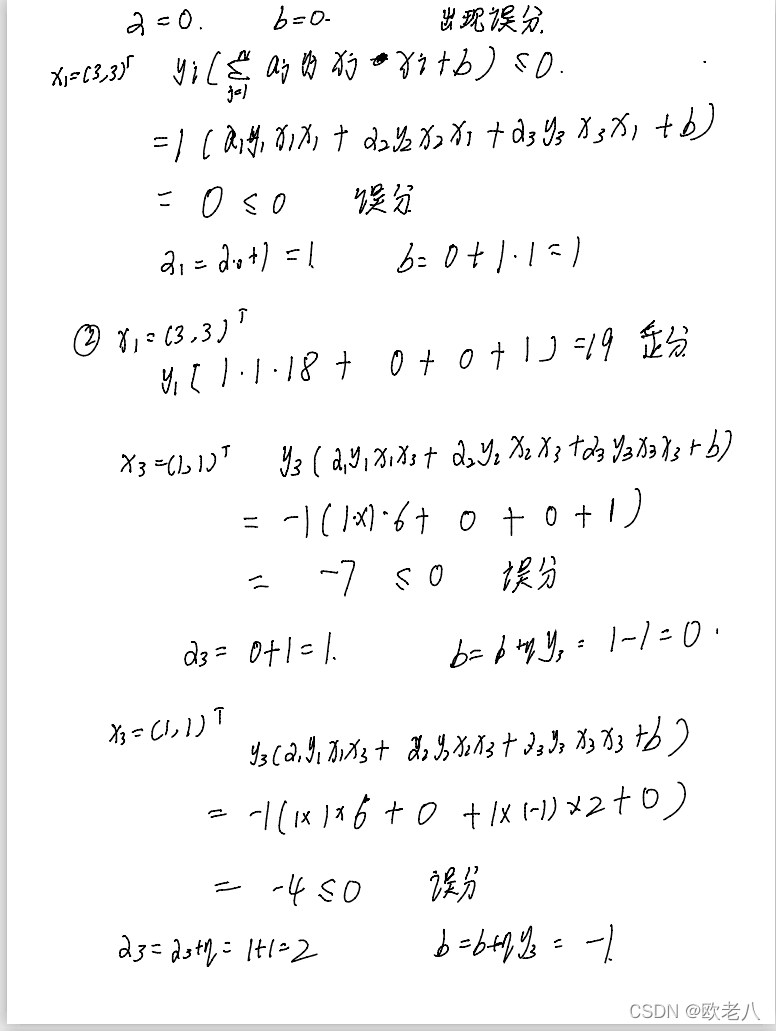 α=0. b=0. 出现误分
x₁=(3,3)ᵀ yᵢ(∑ⱼ₌₁ᴺ αⱼ yⱼ xⱼ · xᵢ+b) ≤0.
=1 (α₁y₁x₁x₁ + α₂y₂x₂x₁ + α₃y₃x₃x₁ + b)
= 0 ≤ 0 误分
α₁ = α·0+1 = 1. b= 0+1·1=1
② x₁=(3,3)ᵀ
y₁[1·1·18 + 0 + 0 + 1] =19 正分
x₃=(1,1)ᵀ y₃(α₁y₁x₁x₃ + α₂y₂x₂x₃ + α₃y₃x₃x₃ + b)
= -1(1·x1·6 + 0 + 0 + 1)
= -7 ≤ 0 误分
α₃ = 0+1=1. b= b+ηy₃ = 1-1=0.
x₃=(1,1)ᵀ
y₃(α₁y₁x₁x₃ + α₂y₂x₂x₃ + α₃y₃x₃x₃ + b)
= -1(1×1×6 + 0 + 1×(-1)×2+0)
= -4 ≤0 误分
α₃=α₃+η=1+1=2 b=b+ηy₃ = -1.
CSDN @欧老八